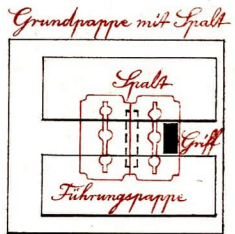 Grundpappe mit Spalt
Spalt
Griff
Führungspappe